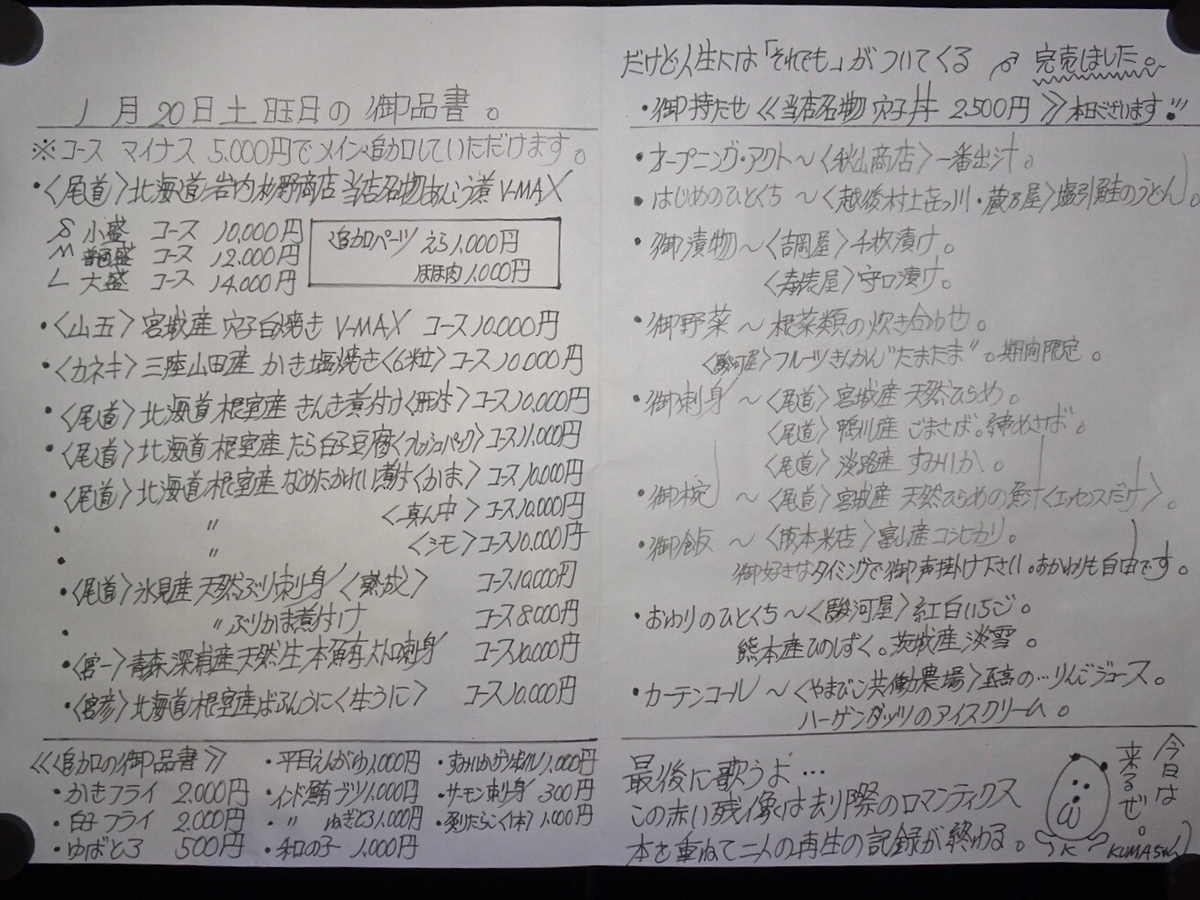 1月20日土曜日の御品書。
※コース マイナス 5.000円でメイン追加していただけます。
・〈尾道〉北海道岩内 野商店 当店名物あんこう煮 V-MAX
S 小盛 コース 10.000円
M 普通盛 コース 12.000円
L 大盛 コース 14.000円
追加パーツ えら1.000円
ほほ肉1.000円
・〈山五〉宮城産 穴子白焼き V-MAX コース10.000円
・〈カネキ〉三陸山田産 かき塩焼き〈6粒〉コース10.000円
・〈尾道〉北海道根室産 きんき煮付け コース10.000円
・〈尾道〉北海道根室産 たら白子豆腐〈フレッシュパック〉コース11.000円
・〈尾道〉北海道根室産 なめたかれい煮付〈かま〉コース10.000円
・ 〃 〈真ん中〉コース10.000円
・ 〃 〈シモ〉コース10.000円
・〈尾道〉氷見産 天然ぶり刺身〈熟成〉 コース10.000円
・ 〃 ぶりかま煮付け コース8.000円
・〈宮一〉青森深浦産天然生本鮪大トロ刺身 コース10.000円
・〈宮彦〉北海道根室産ばふんうに〈生うに〉 コース10.000円
≪追加の御品書≫
・かきフライ 2.000円
・白子フライ 2.000円
・ゆばとろ 500円
・平目えんがわ1.000円
・インド鮪ブツ1.000円
・ 〃 ねぎとろ1.000円
・和の子 1.000円
・すみいかゲソボイル1.000円
・サーモン刺身 300円
・炙りたらこ〈1本〉1.000円
だけど人生には「それでも」がついてくる 完売しました。
・御持たせ≪当店名物 穴子丼 2.500円≫本日ございます!!!
・オープニング・アクト〜〈秋山商店〉一番出汁。
・はじめのひとくち〜〈越後村上㐂っ川・蔵乃屋〉塩引鮭のうどん。
・御漬物〜〈吉岡屋〉千枚漬け。
〈壽俵屋〉守口漬け。
・御野菜〜根菜類の炊き合わせ。
〈駿河屋〉フルーツきんかん"たまたま"。期間限定。
・御刺身〜〈尾道〉宮城産 天然ひらめ。
〈尾道〉鴨川産 ごまさば。締めさば。
〈尾道〉淡路産 すみいか。
・御椀〜〈尾道〉宮城産 天然ひらめの魚汁〈エッセンスだけ〉。
・御飯〜〈阪本米店〉富山産コシヒカリ。
御好きなタイミングで御声掛け下さい。おかわりも自由です。
・おわりのひとくち〜〈駿河屋〉紅白いちご。
熊本産ひのしずく。茨城産淡雪。
・カーテンコール〜〈やまびこ共働農場〉至高の…りんごジュース。
ハーゲンダッツのアイスクリーム。
最後に歌うよ…
この赤い残像は去り際のロマンティクス
本を重ねて二人の再生の記録が終わる。
今日は
来るぜ。
K KUMAさん